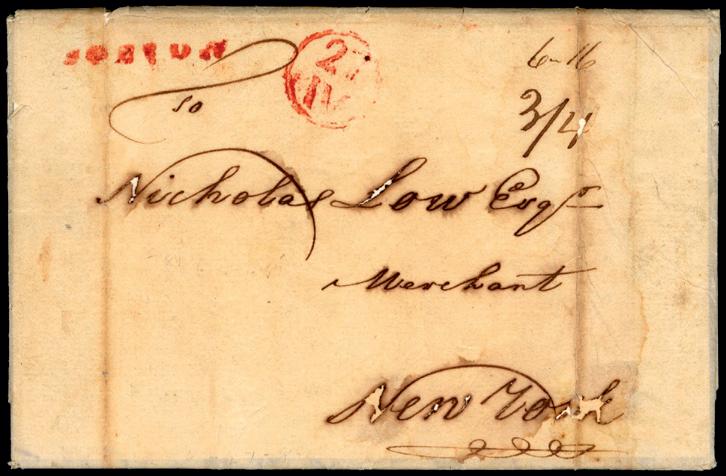 BOSTON
27
IV
6-16
3/4
so
Nicholas Low Esqr
Merchant
New York